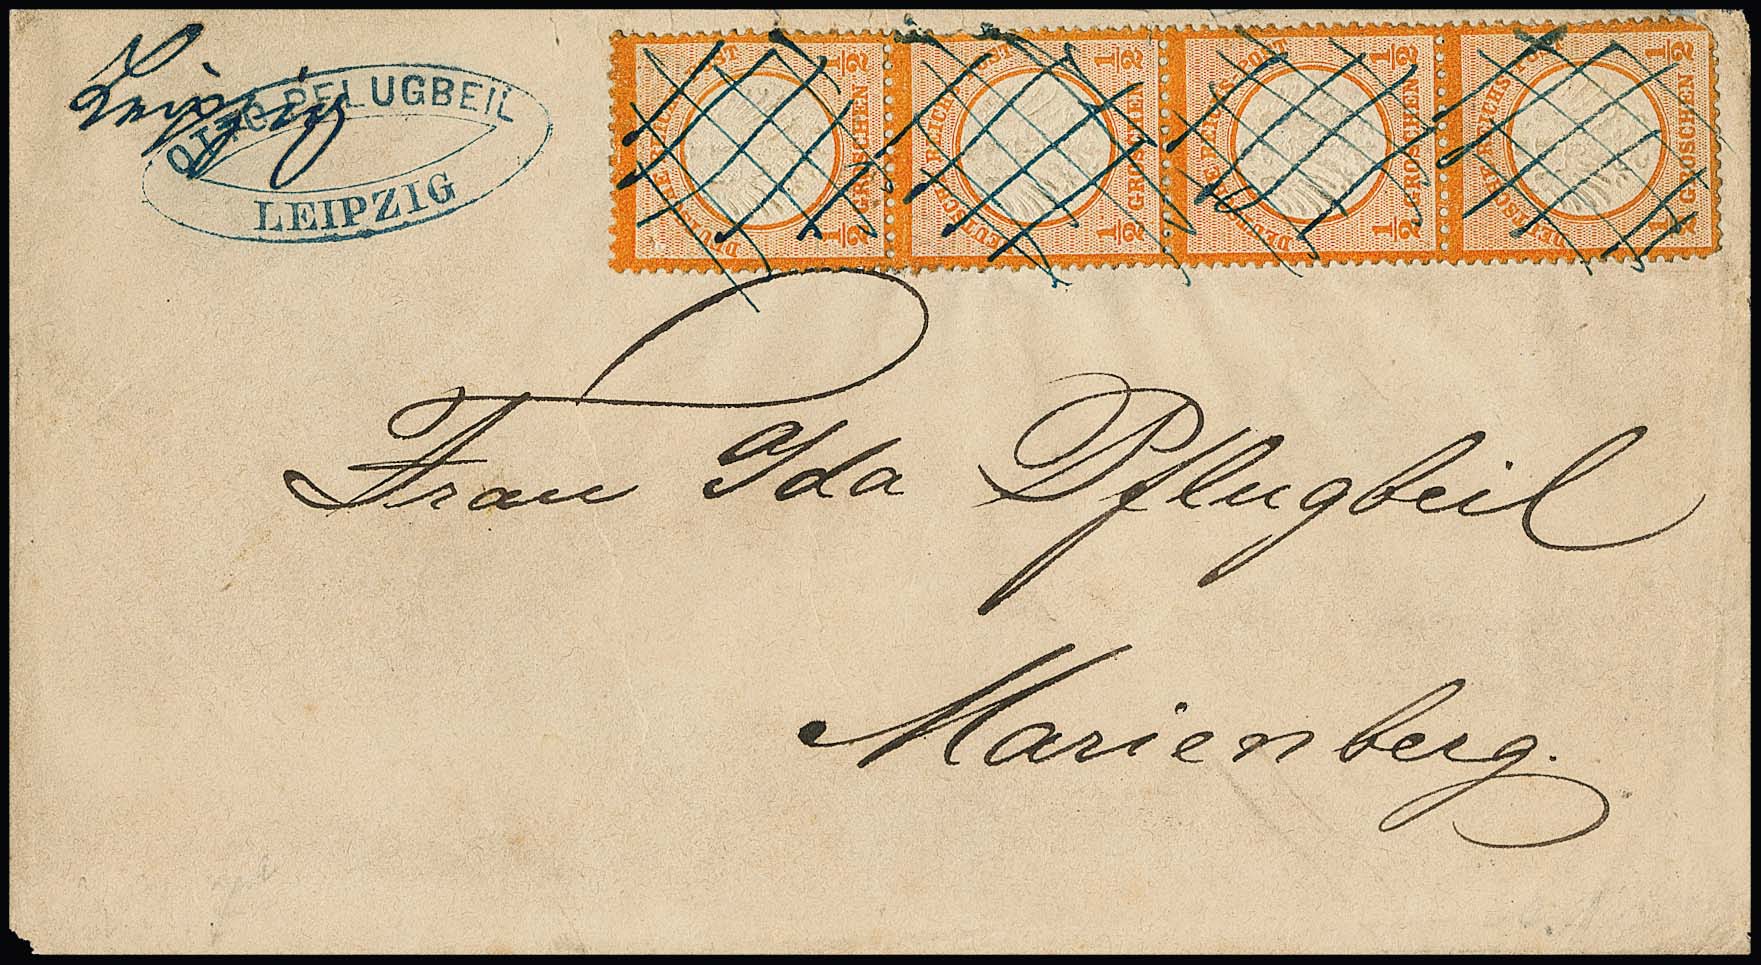 Leipzig
OTTO PFLUGBEIL
LEIPZIG
DEUTSCHE REICHS-POST
1/2 GROSCHEN 1/2
DEUTSCHE REICHS-POST
1/2 GROSCHEN 1/2
DEUTSCHE REICHS-POST
1/2 GROSCHEN 1/2
DEUTSCHE REICHS-POST
1/2 GROSCHEN 1/2
Frau Ida Pflugbeil
Marienberg.